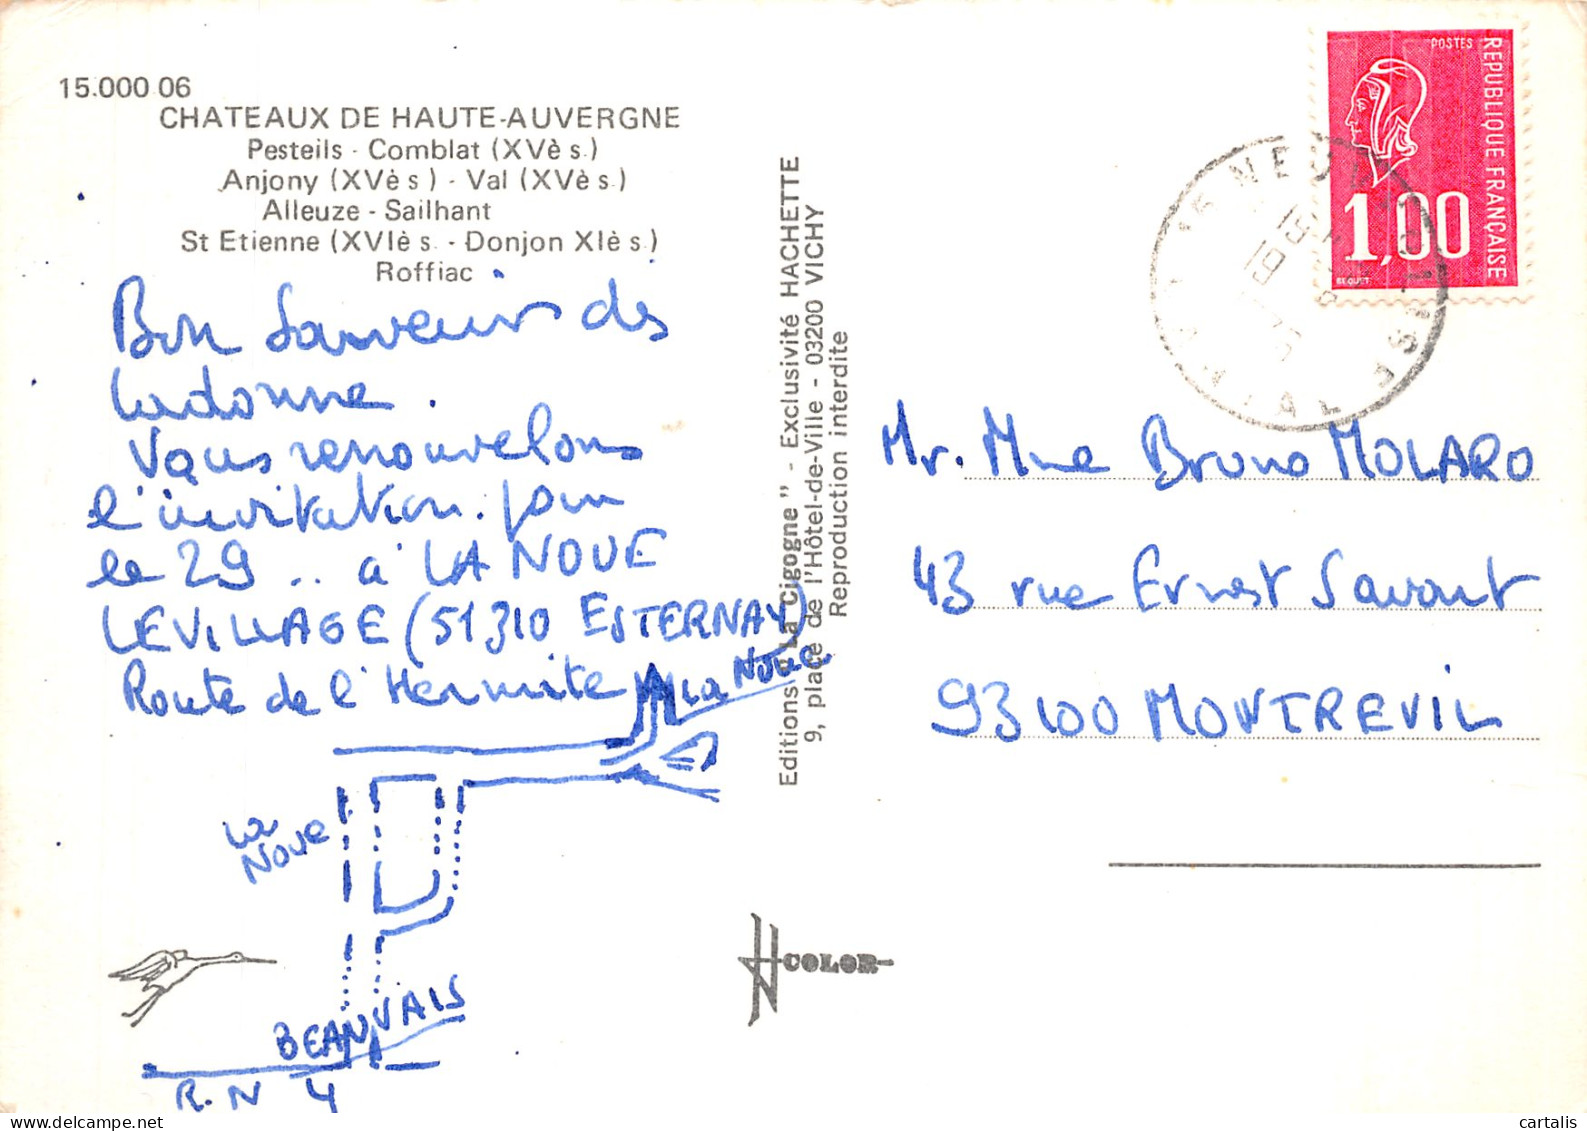 15.000 06
CHATEAUX DE HAUTE-AUVERGNE
Pesteils - Comblat (XVè s.)
Anjony (XVè s) - Val (XVè s.)
Alleuze - Sailhant
St Etienne (XVIè s. - Donjon XIè s.)
Roffiac
Bon Souvenir des
Ladonne.
Vous renouvelons
l'invitation pour
le 29 .. à LA NOUE
LE VILLAGE (51310 ESTERNAY)
Route de l'Hermite
La Noue
LA
NOUE
BEAUVAIS
R.N 4
Editions "La Cigogne" - Exclusivité HACHETTE
9, place de l'Hôtel-de-Ville - 03200 VICHY
Reproduction interdite
COLOR
POSTES
REPUBLIQUE FRANÇAISE
1,00
BEQUET
Mr. Mme Bruno MOLARO
43 rue Ernest Savart
93100 MONTREUIL
cartalis